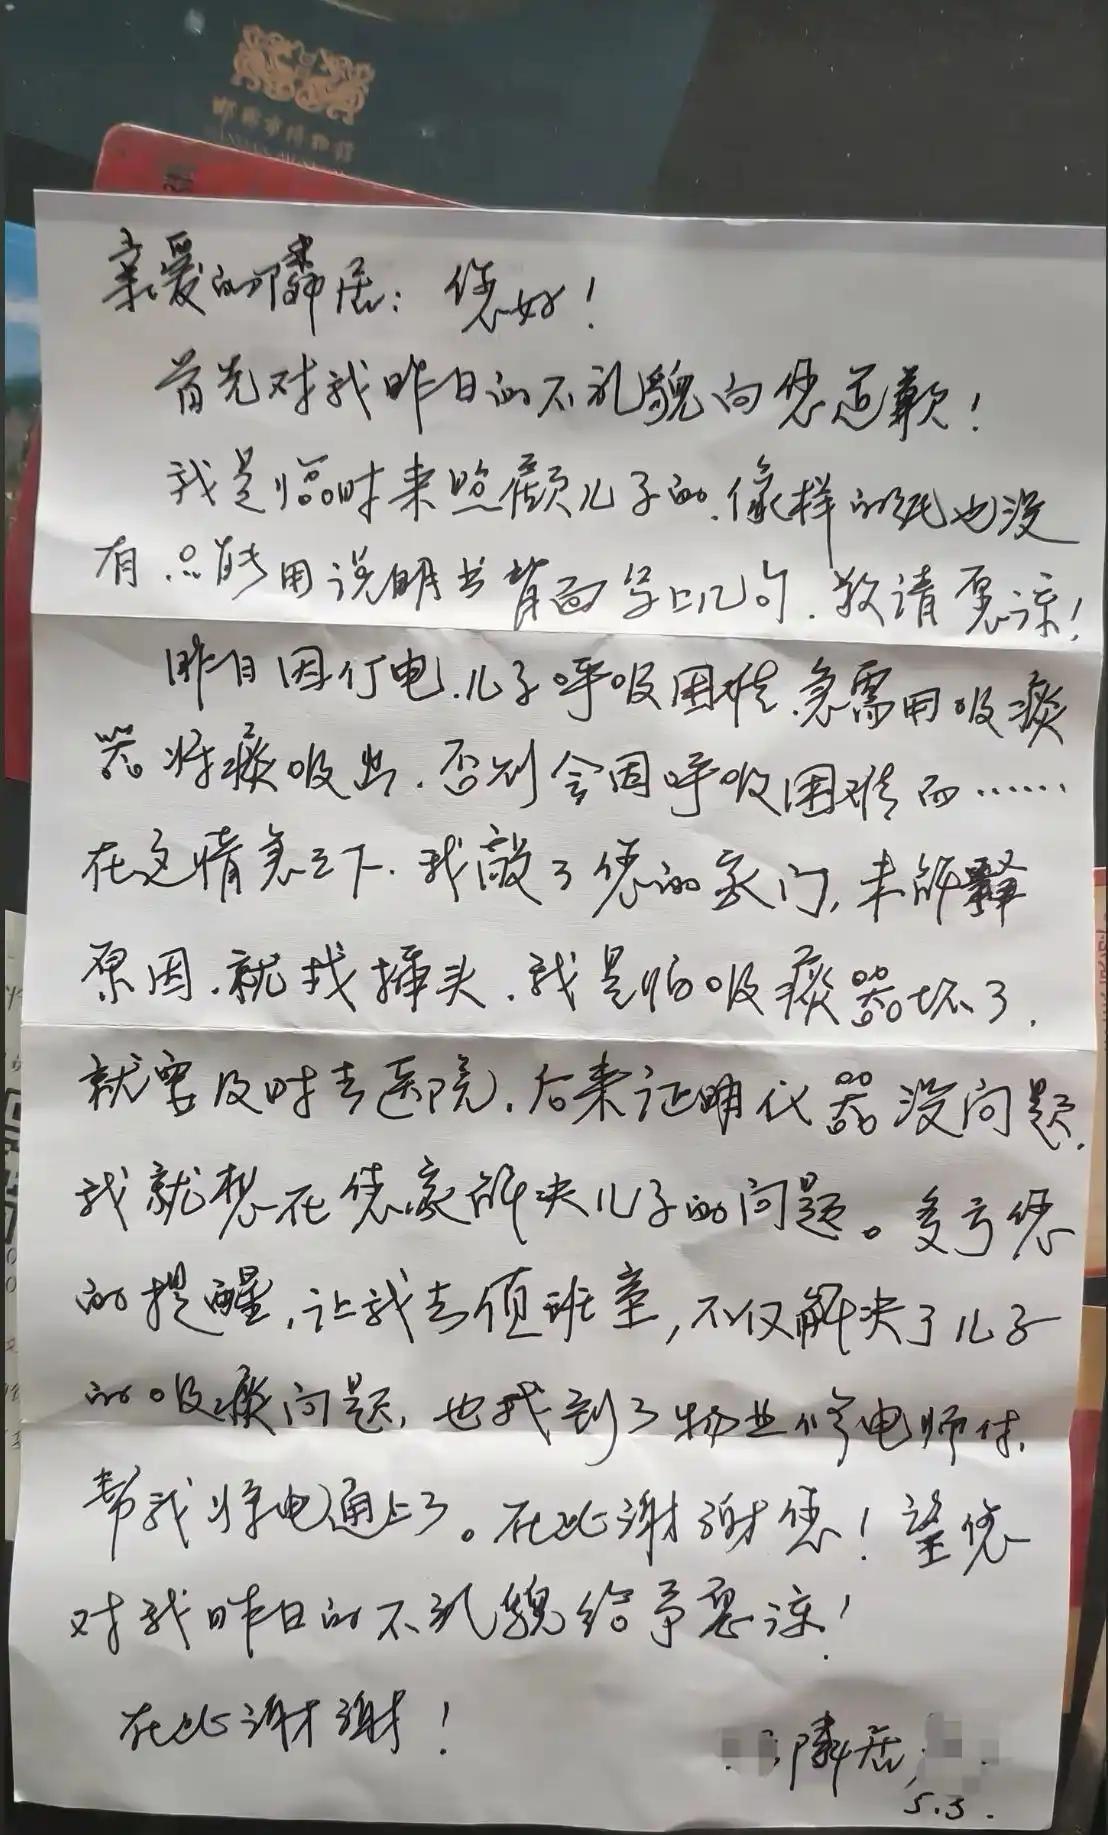 邯郸市博物馆
亲爱的隣居：您好！
首先对我昨日的不礼貌向您道歉！
我是临时来照顾儿子的，像样的纸也没
有，只能用说明书背面写上几句，敬请原谅！
昨日因停电，儿子呼吸困难，急需用吸痰
器将痰吸出，否则会因呼吸困难而……
在这情急之下，我敲了您的家门，未解释
原因，就找插头，我是怕吸痰器坏了，
就要及时去医院，后来证明仪器没问题，
我就想在您家解决儿子的问题。多亏您
的提醒，让我去值班室，不仅解决了儿子
的吸痰问题，也找到了物业修电师付，
帮我将电通上了。在此谢谢您！望您
对我昨日的不礼貌给予原谅！
在此谢谢！
隣居
5.3.